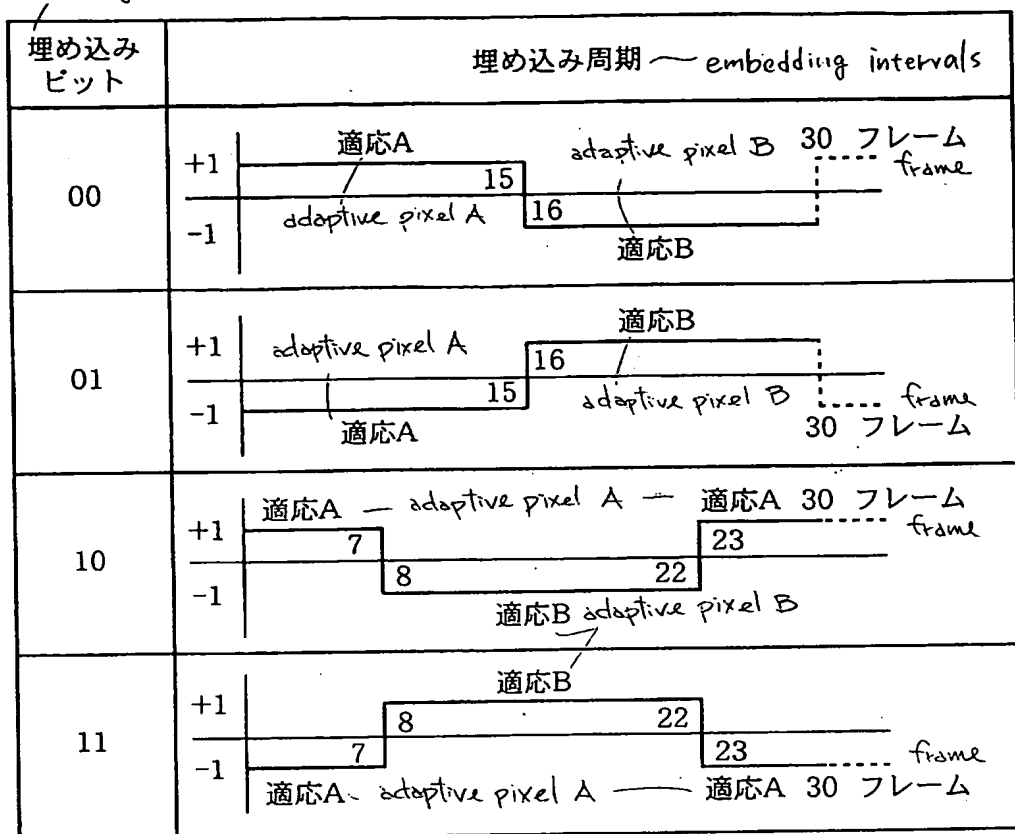 埋め込み
ビット
埋め込み周期 — embedding intervals
00
+1
-1
適応A
adaptive pixel A
15
16
adaptive pixel B
適応B
30 フレーム
frame
01
+1
-1
adaptive pixel A
15
適応A
適応B
16
adaptive pixel B
frame
30 フレーム
10
+1
-1
適応A — adaptive pixel A — 適応A 30 フレーム
frame
7
23
8
22
適応B adaptive pixel B
11
+1
-1
適応B
8
22
7
23
frame
適応A adaptive pixel A — 適応A 30 フレーム